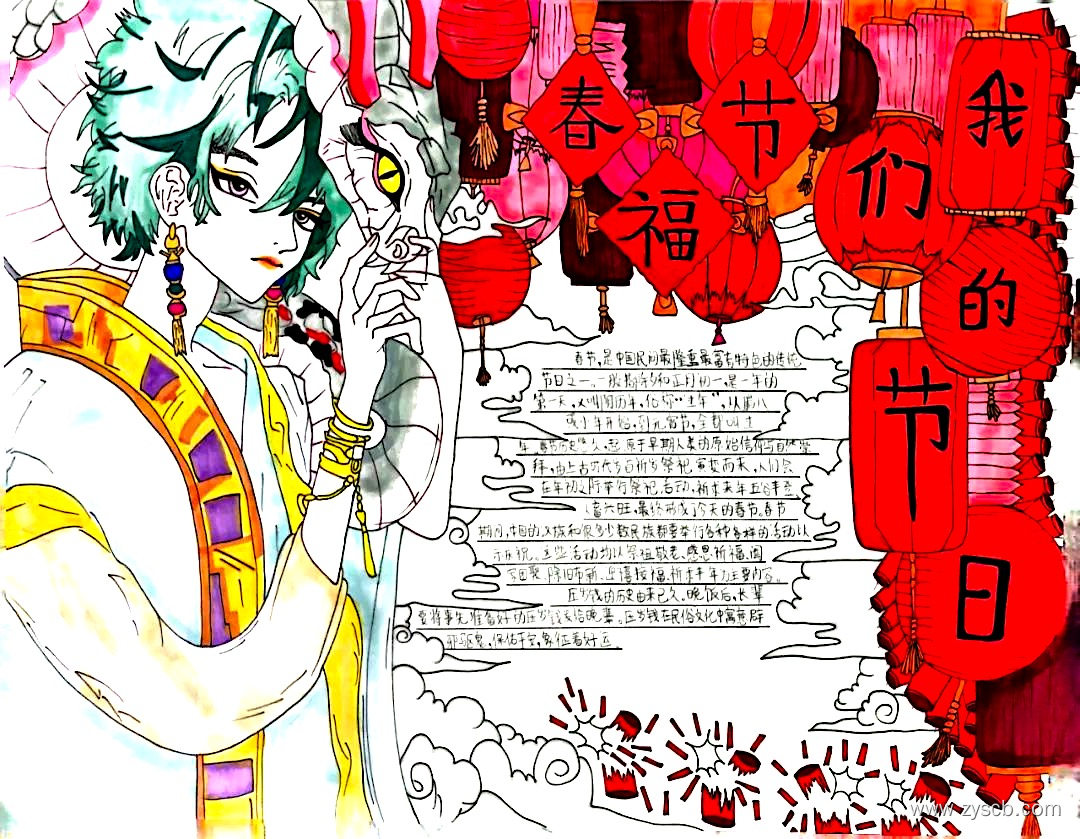 我们的节日
春节
福
春节,是中国民间最隆重最富有特色的传统
节日之一,一般指除夕和正月初一,是一年的
第一天,又叫阴历年,俗称“过年”,从腊八
或小年开始,到元宵节,全都叫过
年,春节历史悠久,起原于早期人类的原始信仰与自然崇
拜,由上古时代岁首祈岁祭祀演变而来,人们会
在年初之际举行祭祀活动,祈求来年五谷丰登
人畜兴旺,最终形成了今天的春节。春节
期间,中国的汉族和很多少数民族都要举行各种各样的活动以
示庆祝,这些活动均以祭祖敬老、感恩祈福、阖
家团聚、除旧布新、迎禧接福、祈求丰年为主要内容。
压岁钱的历史由来已久,晚饭后,长辈
要将事先准备好的压岁钱发给晚辈,压岁钱在民俗文化中寓意辟
邪驱鬼,保佑平安,象征着好运。
www.zyscb.com